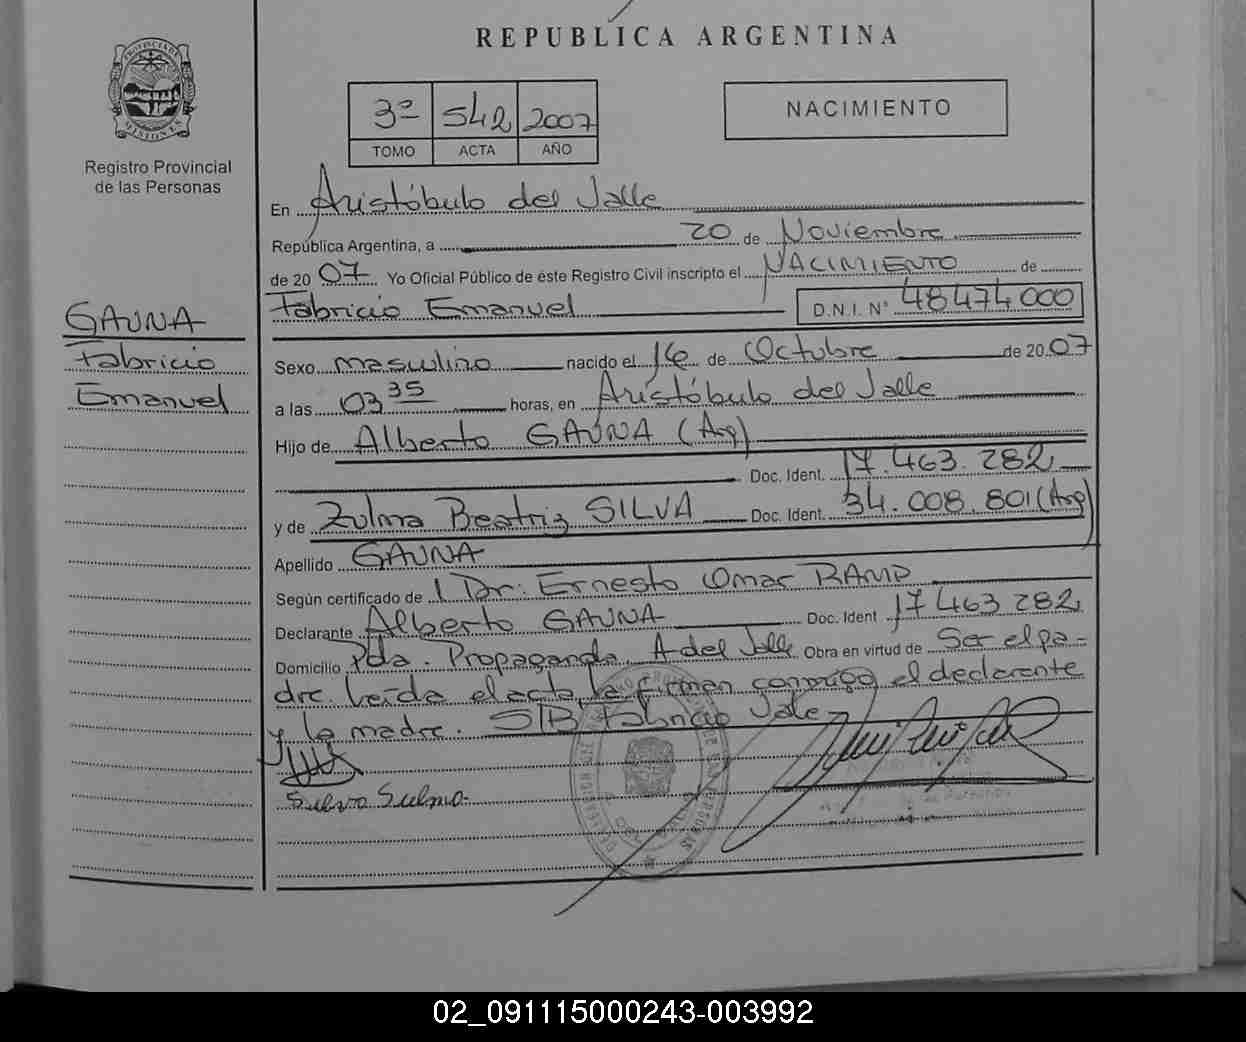 REPUBLICA ARGENTINA
PROVINCIA DE MISIONES
Registro Provincial
de las Personas
3º 542 2007
TOMO ACTA AÑO
NACIMIENTO
En Aristóbulo del Valle
República Argentina, a 20 de Noviembre
de 20 07 Yo Oficial Público de este Registro Civil inscripto el NACIMIENTO de
Fabricio Emanuel D.N.I. Nº 48474000
GAUNA
Fabricio
Emanuel
Sexo masculino nacido el 16 de Octubre de 20 07
a las 03 35 horas, en Aristóbulo del Valle
Hijo de Alberto GAUNA (Arg)
Doc. Ident. 17.463.282
y de Zulma Beatriz SILVA Doc. Ident. 34.008.801 (Arg)
Apellido GAUNA
Según certificado de Dr: Ernesto Omar RAMP
Declarante Alberto GAUNA Doc. Ident 17463282
Domicilio Pda. Propaganda A del Valle Obra en virtud de Ser el pa-
dre. Leída el acta, la firman conmigo el declarante
y la madre. STB Fabricio Vale
Silva Sulma
02_091115000243-003992